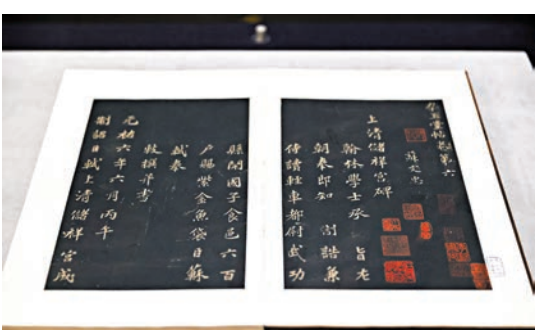 羣玉堂帖卷第六
蘇文忠
上清儲祥宮碑
翰林學士承 旨左
朝奉郎知 制誥兼
侍讀輕車都尉武功
縣開國子食邑六百
戶賜紫金魚袋臣蘇
軾奉
敕撰并書
元祐六年六月丙午
制詔臣軾上清儲祥宮成